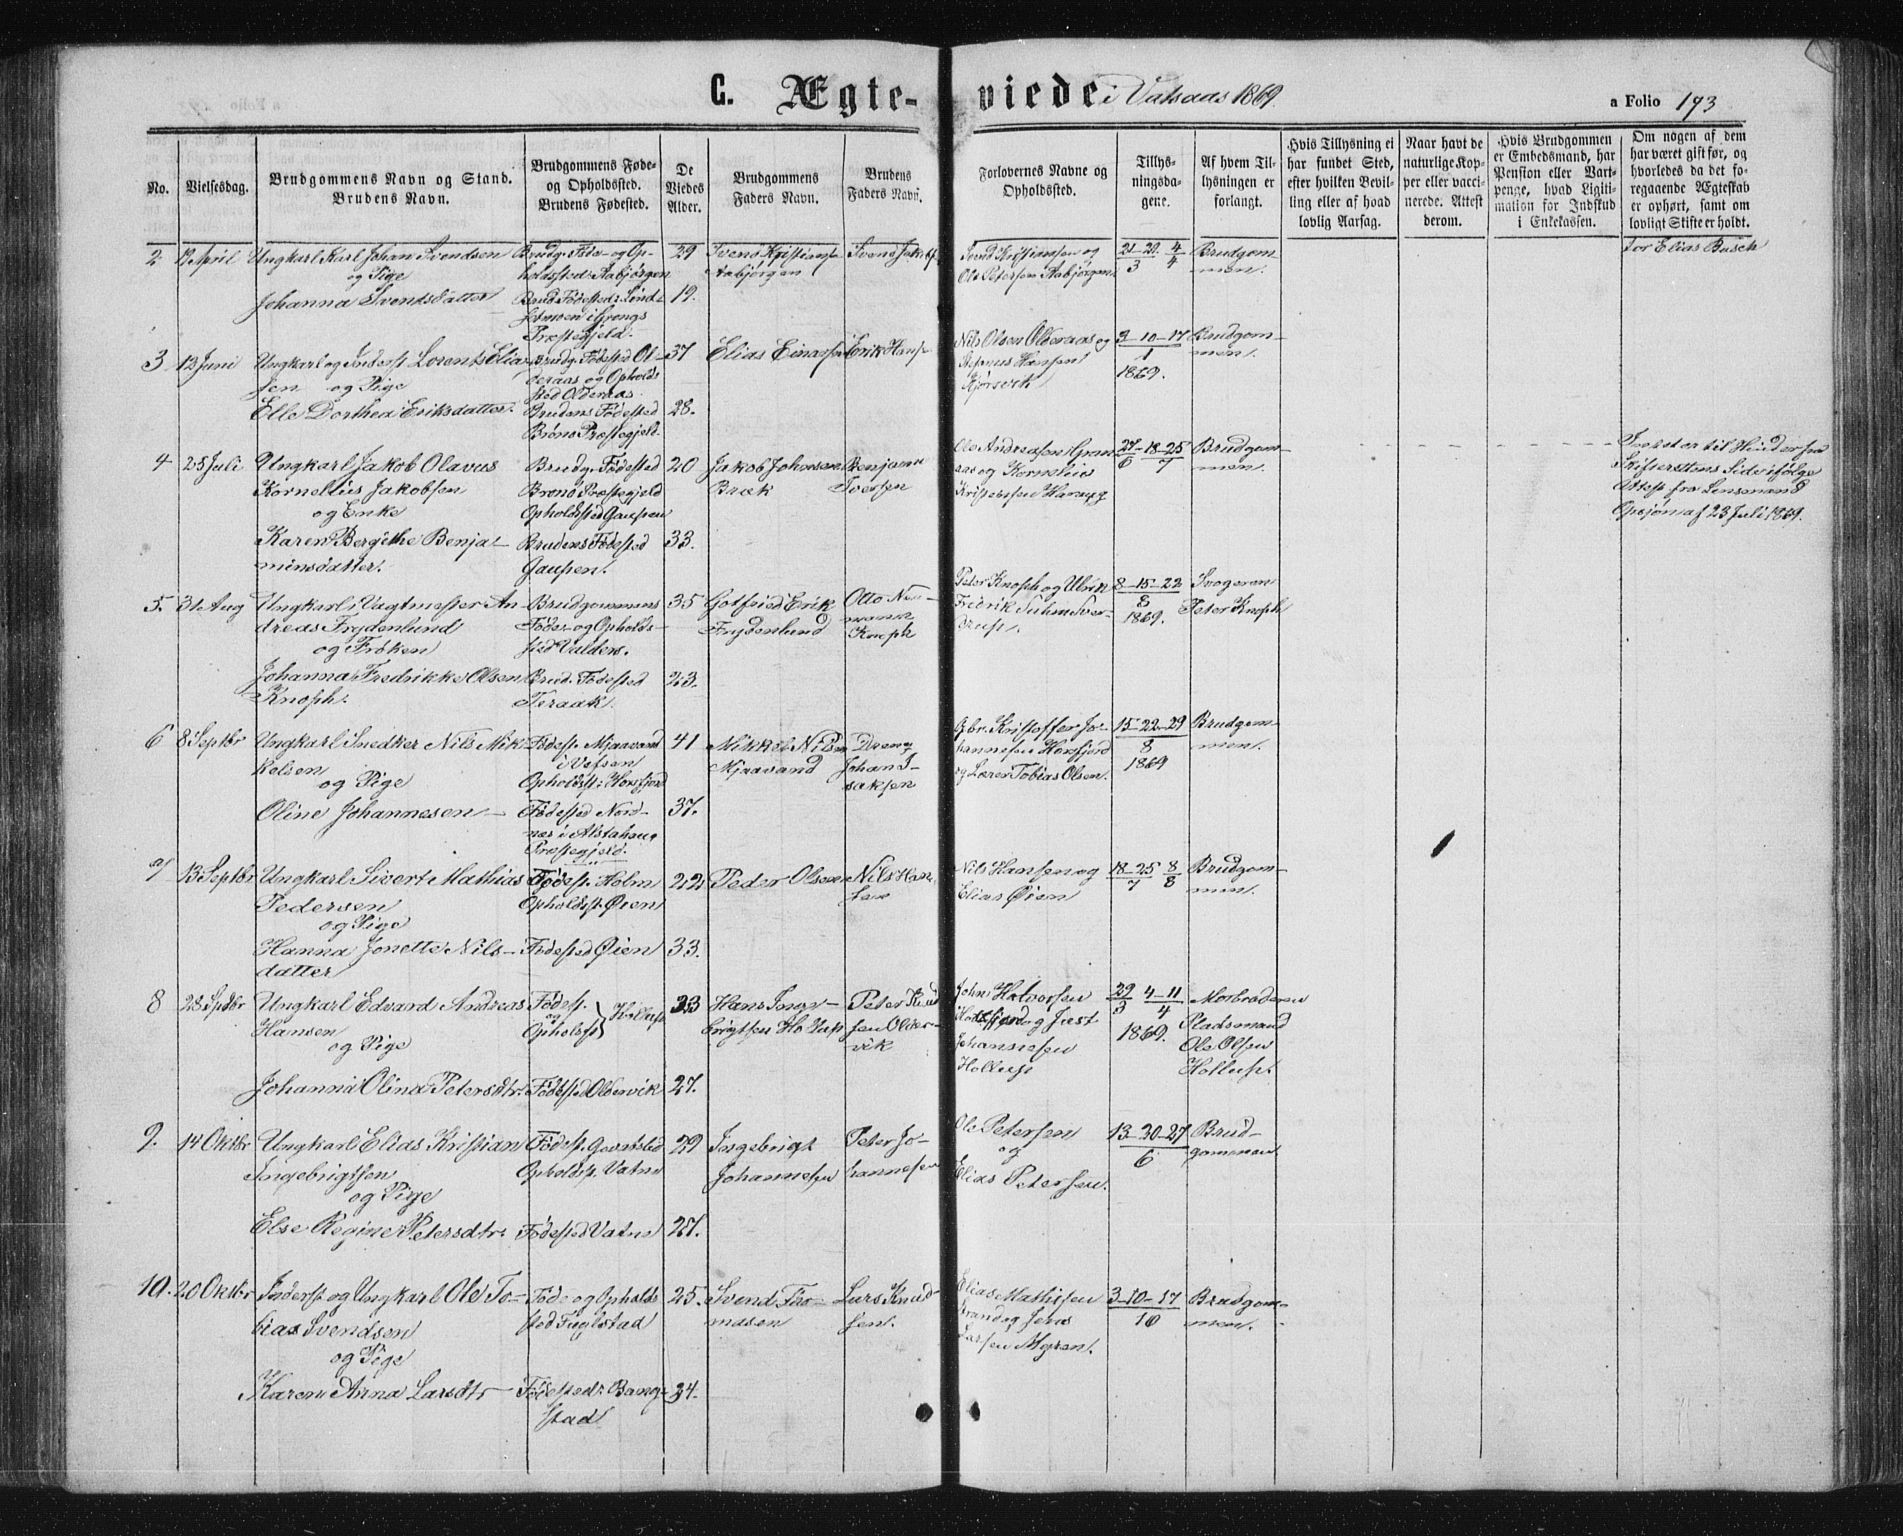 C. Ægte-viede i Vatsaas 1869.
a Folio 193
No.
Vielsesdag.
Brudgommens Navn og Stand.
Brudens Navn.
Brudgommens Føde-
og Opholdssted.
Brudens Fødested.
De
Viedes
Alder.
Brudgommens
Faders Navn.
Brudens
Faders Navn.
Forlovernes Navne og
Opholdssted.
Tillys-
ningsda-
gene.
Af hvem Til-
lysningen er
forlangt.
Hvis Tillysning ei
har fundet Sted,
efter hvilken Bevil-
ling eller af hvad
lovlig Aarsag.
Naar havt de
naturlige Kop-
per eller vacci-
nerede. Attest
derom.
Hvis Brudgommen
er Embedsmand, har
Pension eller Vart-
penge, hvad Ligiti-
mation for Indskud
i Enkekassen.
Om nogen af dem
har været gift før, og
hvorledes da det fo-
regaaende Ægteskab
er ophørt, samt om
lovligt Skifte er holdt.
2
12 April
Ungkarl Karl Johan Svendsen
og Pige
Johanna Svendsdatter
Brudg. Føde- og Op-
holdssted: Aabjørgen
Brud. Fødested:
i Grongs
Præstegjeld.
29
19.
Svend Kristians
Aabjørgen
Svend Jakobs
Svend Kristiansen og
Ole Petersen Aabjørgen
21-29 4
3 4
Brudgom-
men.
for Elias Busch
3
12 Juni
Ungkarl og Inderst Lorents Elia-
sen og Pige
Elle Dorthea Eriksdatter.
Brudg. Fødested Ol-
deraas og Opholds
sted Olderaas.
Brudens Fødested
Brønø Præstegjeld.
37
28.
Elias Einarsen
Erik Hans
Nils Olsen Olderaas og
Hansen
3-10-17
1
1869.
Brudgom-
men.
4
25 Juli
Ungkarl Jakob Olavus
Kornelius Jakobsen
og Enke
Karen Bergithe Benja-
minsdatter.
Brudg. Fødested
Brønø Præstegjeld
Opholdssted Gaupen
Brudens Fødested
Gaupen.
20
33.
Jakob Johnsen
Bræk
Benjamin
Iversen
Ole Andreasen Gran-
aas og Kornelius
Kristensen
27-18-25
6 7
Brudgom-
men.
Intet er til Hinder fra
Skifterettens Side ifølge
Attest fra Lensmand
Opsjøn af 23 Juli 1869.
5.
31 Aug
Ungkarl, Vagtmester An-
dreas Frydenlund
og Frøken
Johanna Fredrikke Olsen
Knoph.
Brudgommens
Føde- og Opholds-
sted Valders.
Brud. Fødested
Teraak.
35
23.
Gotfried Erik
Frydenlund
Otto Nor-
mann
Knoph
Peter Knoph og Ulrik
Fredrik Suhm Sver-
drup.
8-15-22
8
1869.
Svogeren
Peter Knoph
6
8 Septbr
Ungkarl Snedker Nils Mik-
kelsen
og Pige
Oline Johannesen
Fødest. Mjaavand
i Vefsen
Opholdsst: Horsfjord
Fødested Nord-
næs i Alstahaug
Præstegjeld.
41
37.
Mikkel Nilsen
Mjaavand
Dreng
Johan I-
saksen
Gbr. Kristoffer Jo-
hannesen Horsfjord
og Lærer Tobias Olsen.
15-22-29
8
1869
Brudgom-
men.
7
13 Septbr
Ungkarl Sivert Mathias
Pedersen
og Pige
Hanna Jonette Nils-
datter
Fødest. Holm
Opholdsst. Øien
Fødested Øien
22
33.
Peder Olsen
Nils Han-
sen
Nils Hansen og
Elias Øien
18-25 8
7 8
Brudgom-
men.
8
28 Septbr
Ungkarl Edvard Andreas
Hansen
og Pige
Johanna Olina Petersdtr.
Fødest.
og
Opholdst Hollup
Fødested Oldervik
23
27.
Hans Inge-
brigtsen Hollup
Peter Knud
sen Older-
vik
John Halvorsen
Horsfjord og Just
Johannesen
Hollup
29 4-11
3 4
1869.
Morbroderen
Pladsmand
Ole Olsen
Hollup.
9.
14 Oktbr
Ungkarl Elias Kristian
Ingebrigtsen
og Pige
Else Regine Petersdtr.
Fødest.
Opholdsst. Vatne
Fødested Vatne
29
27.
Ingebrigt
Johannesen
Peter Jo-
hannesen
Ole Petersen
og
Elias Petersen.
13-20-27
6
Brud-
gommen
10.
20 Oktbr
Inderst og Ungkarl Ole To-
bias Svendsen
og Pige
Karen Anna Larsdtr
Føde og Opholds
sted Fuglstad
Fødested: Bang-
stad
25.
24.
Svend Tho-
masen
Lars Knud-
sen.
Elias Mathisen
Strand og Jens
Larsen Myren.
3-10-17
10
Brudgom-
men.